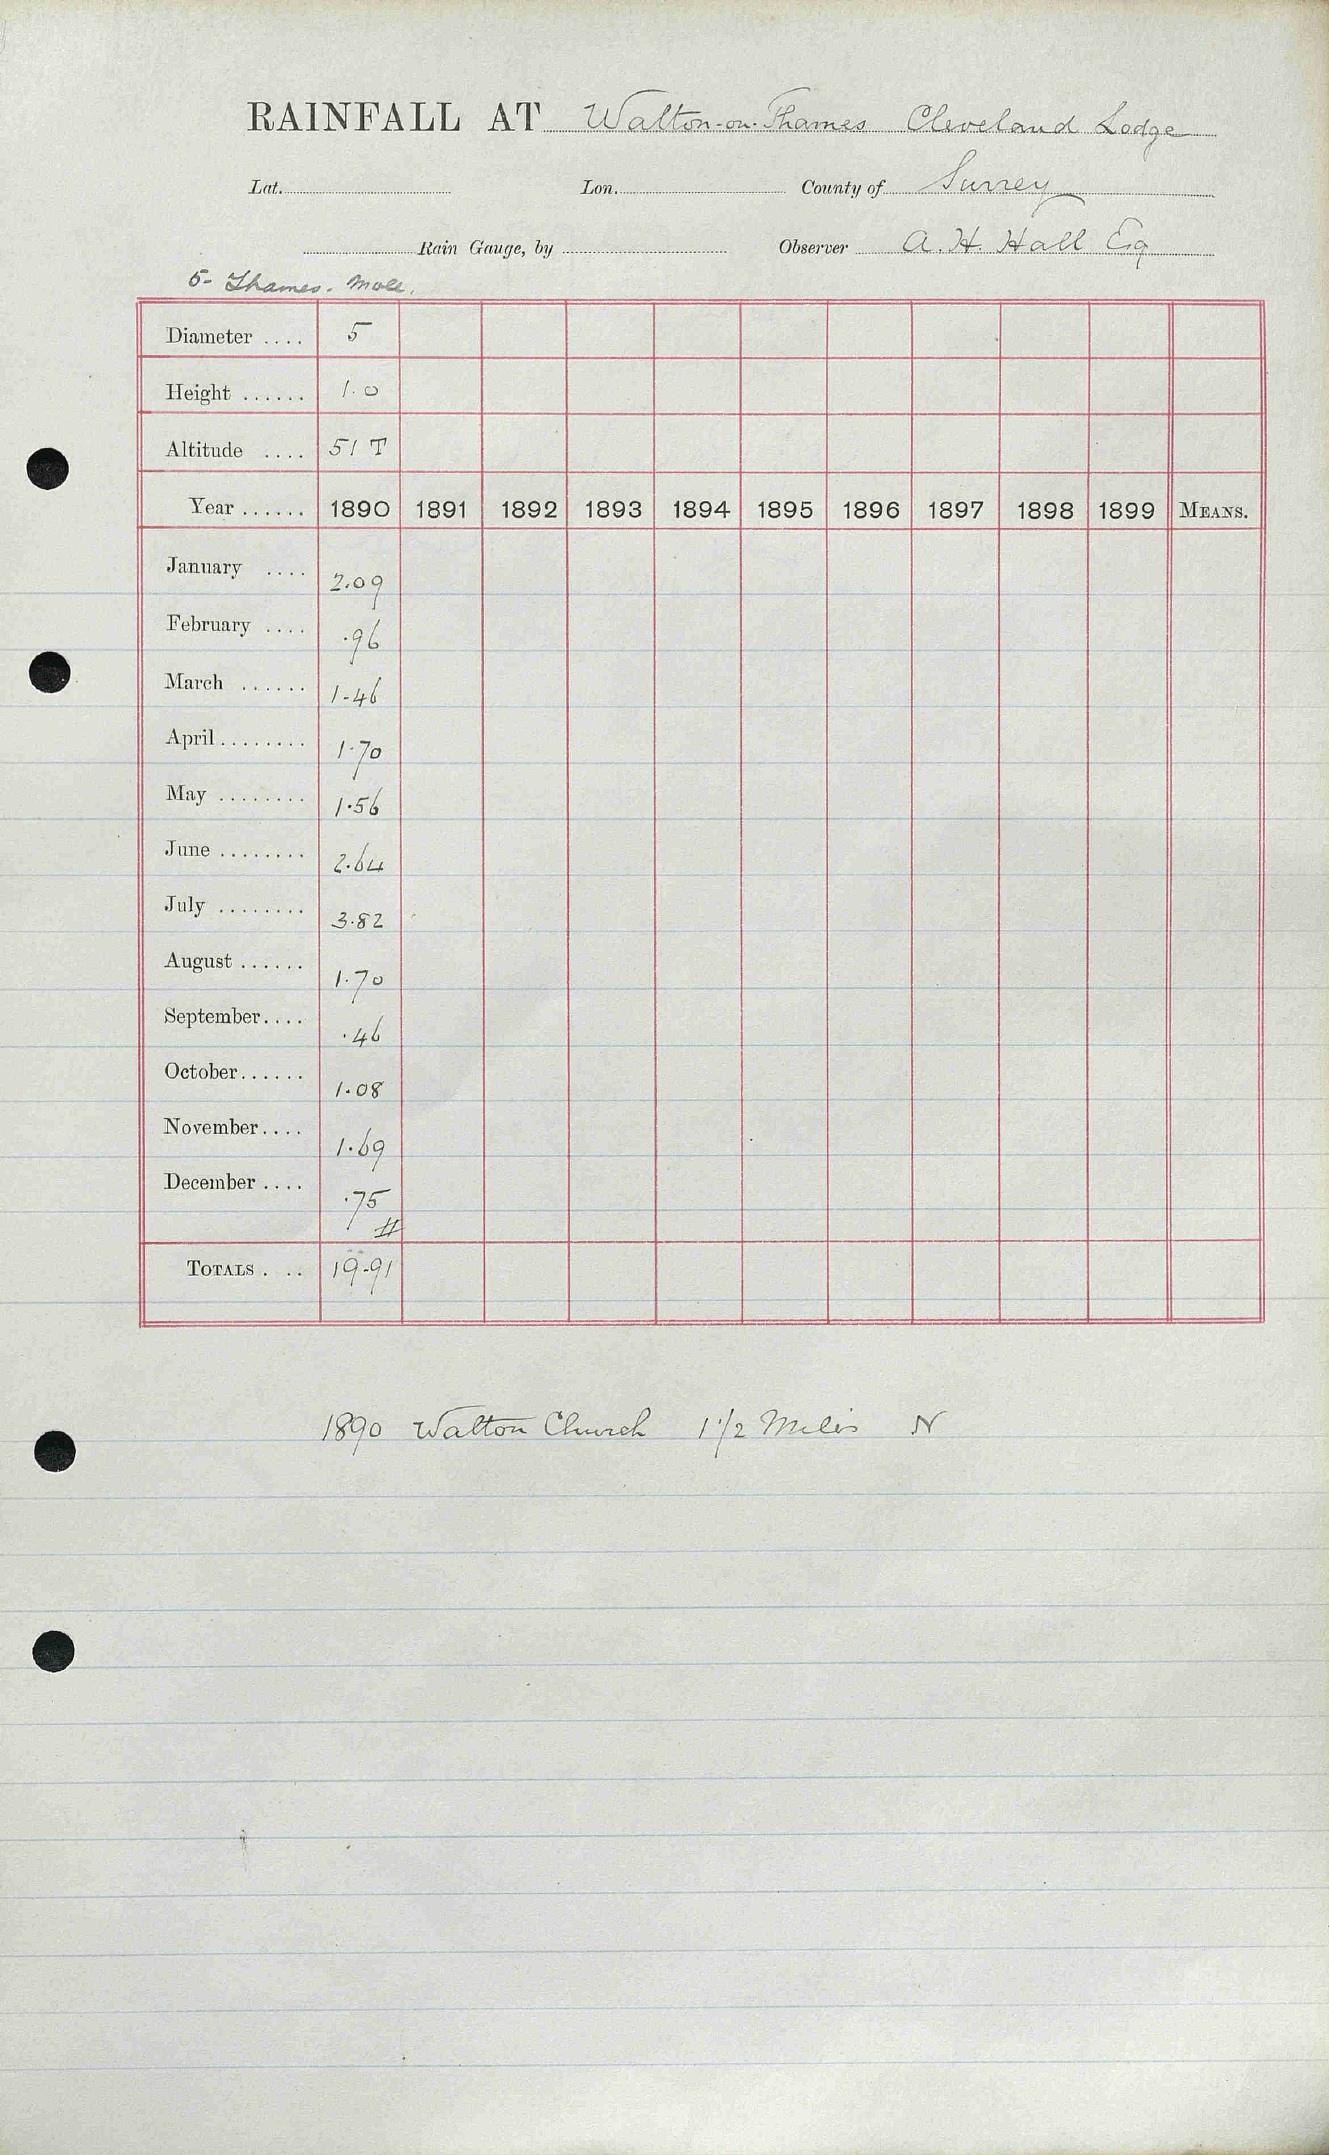 RAINFALL AT Walton-on-Thames Cleveland Lodge
Lat. Lon. County of Surrey
Rain Gauge, by Observer A. H. Hall Esq
5- Thames. Mole.
Diameter .... 5
Height ...... 1.0
Altitude .... 51 T
Year ...... 1890 1891 1892 1893 1894 1895 1896 1897 1898 1899 MEANS.
January .... 2.09
February .... .96
March ...... 1.46
April ........ 1.70
May ........ 1.56
June ........ 2.64
July ........ 3.82
August ...... 1.70
September .... .46
October ...... 1.08
November .... 1.69
December .... .75
TOTALS . .. 19.91
1890 Walton Church 1 1/2 Miles N